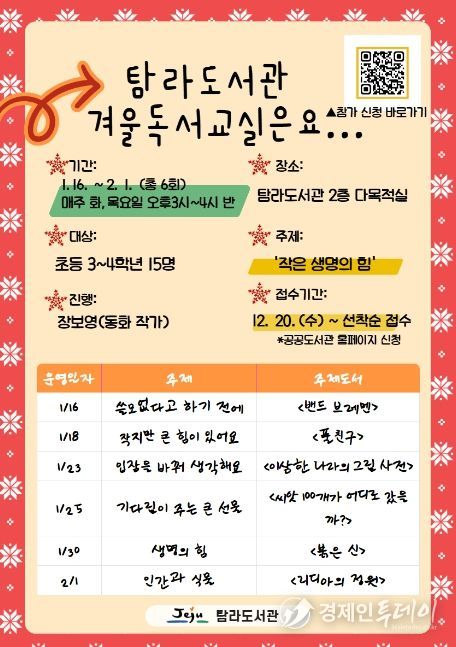 탐라도서관
겨울독서교실은요...
▲참가 신청 바로가기
기간:
1.16. ~ 2. 1. (총 6회)
매주 화,목요일 오후3시~4시 반
장소:
탐라도서관 2층 다목적실
대상:
초등 3~4학년 15명
주제:
'작은 생명의 힘'
진행:
장보영(동화 작가)
접수기간:
12. 20.(수) ~ 선착순 접수
*공공도서관 홈페이지 신청
운영일자 주제 주제도서
1/16 쓸모없다고 하기 전에 <밴드 브레멘>
1/18 작지만 큰 힘이 있어요 <풀친구>
1/23 입장을 바꿔 생각해요 <이상한 나라의 그림 사전>
1/25 기다림이 주는 큰 선물 <씨앗 100개가 어디로 갔을
까?>
1/30 생명의 힘 <붉은 신>
2/1 인간과 식물 <리디아의 정원>
Jeju 탐라도서관
경제인투데이